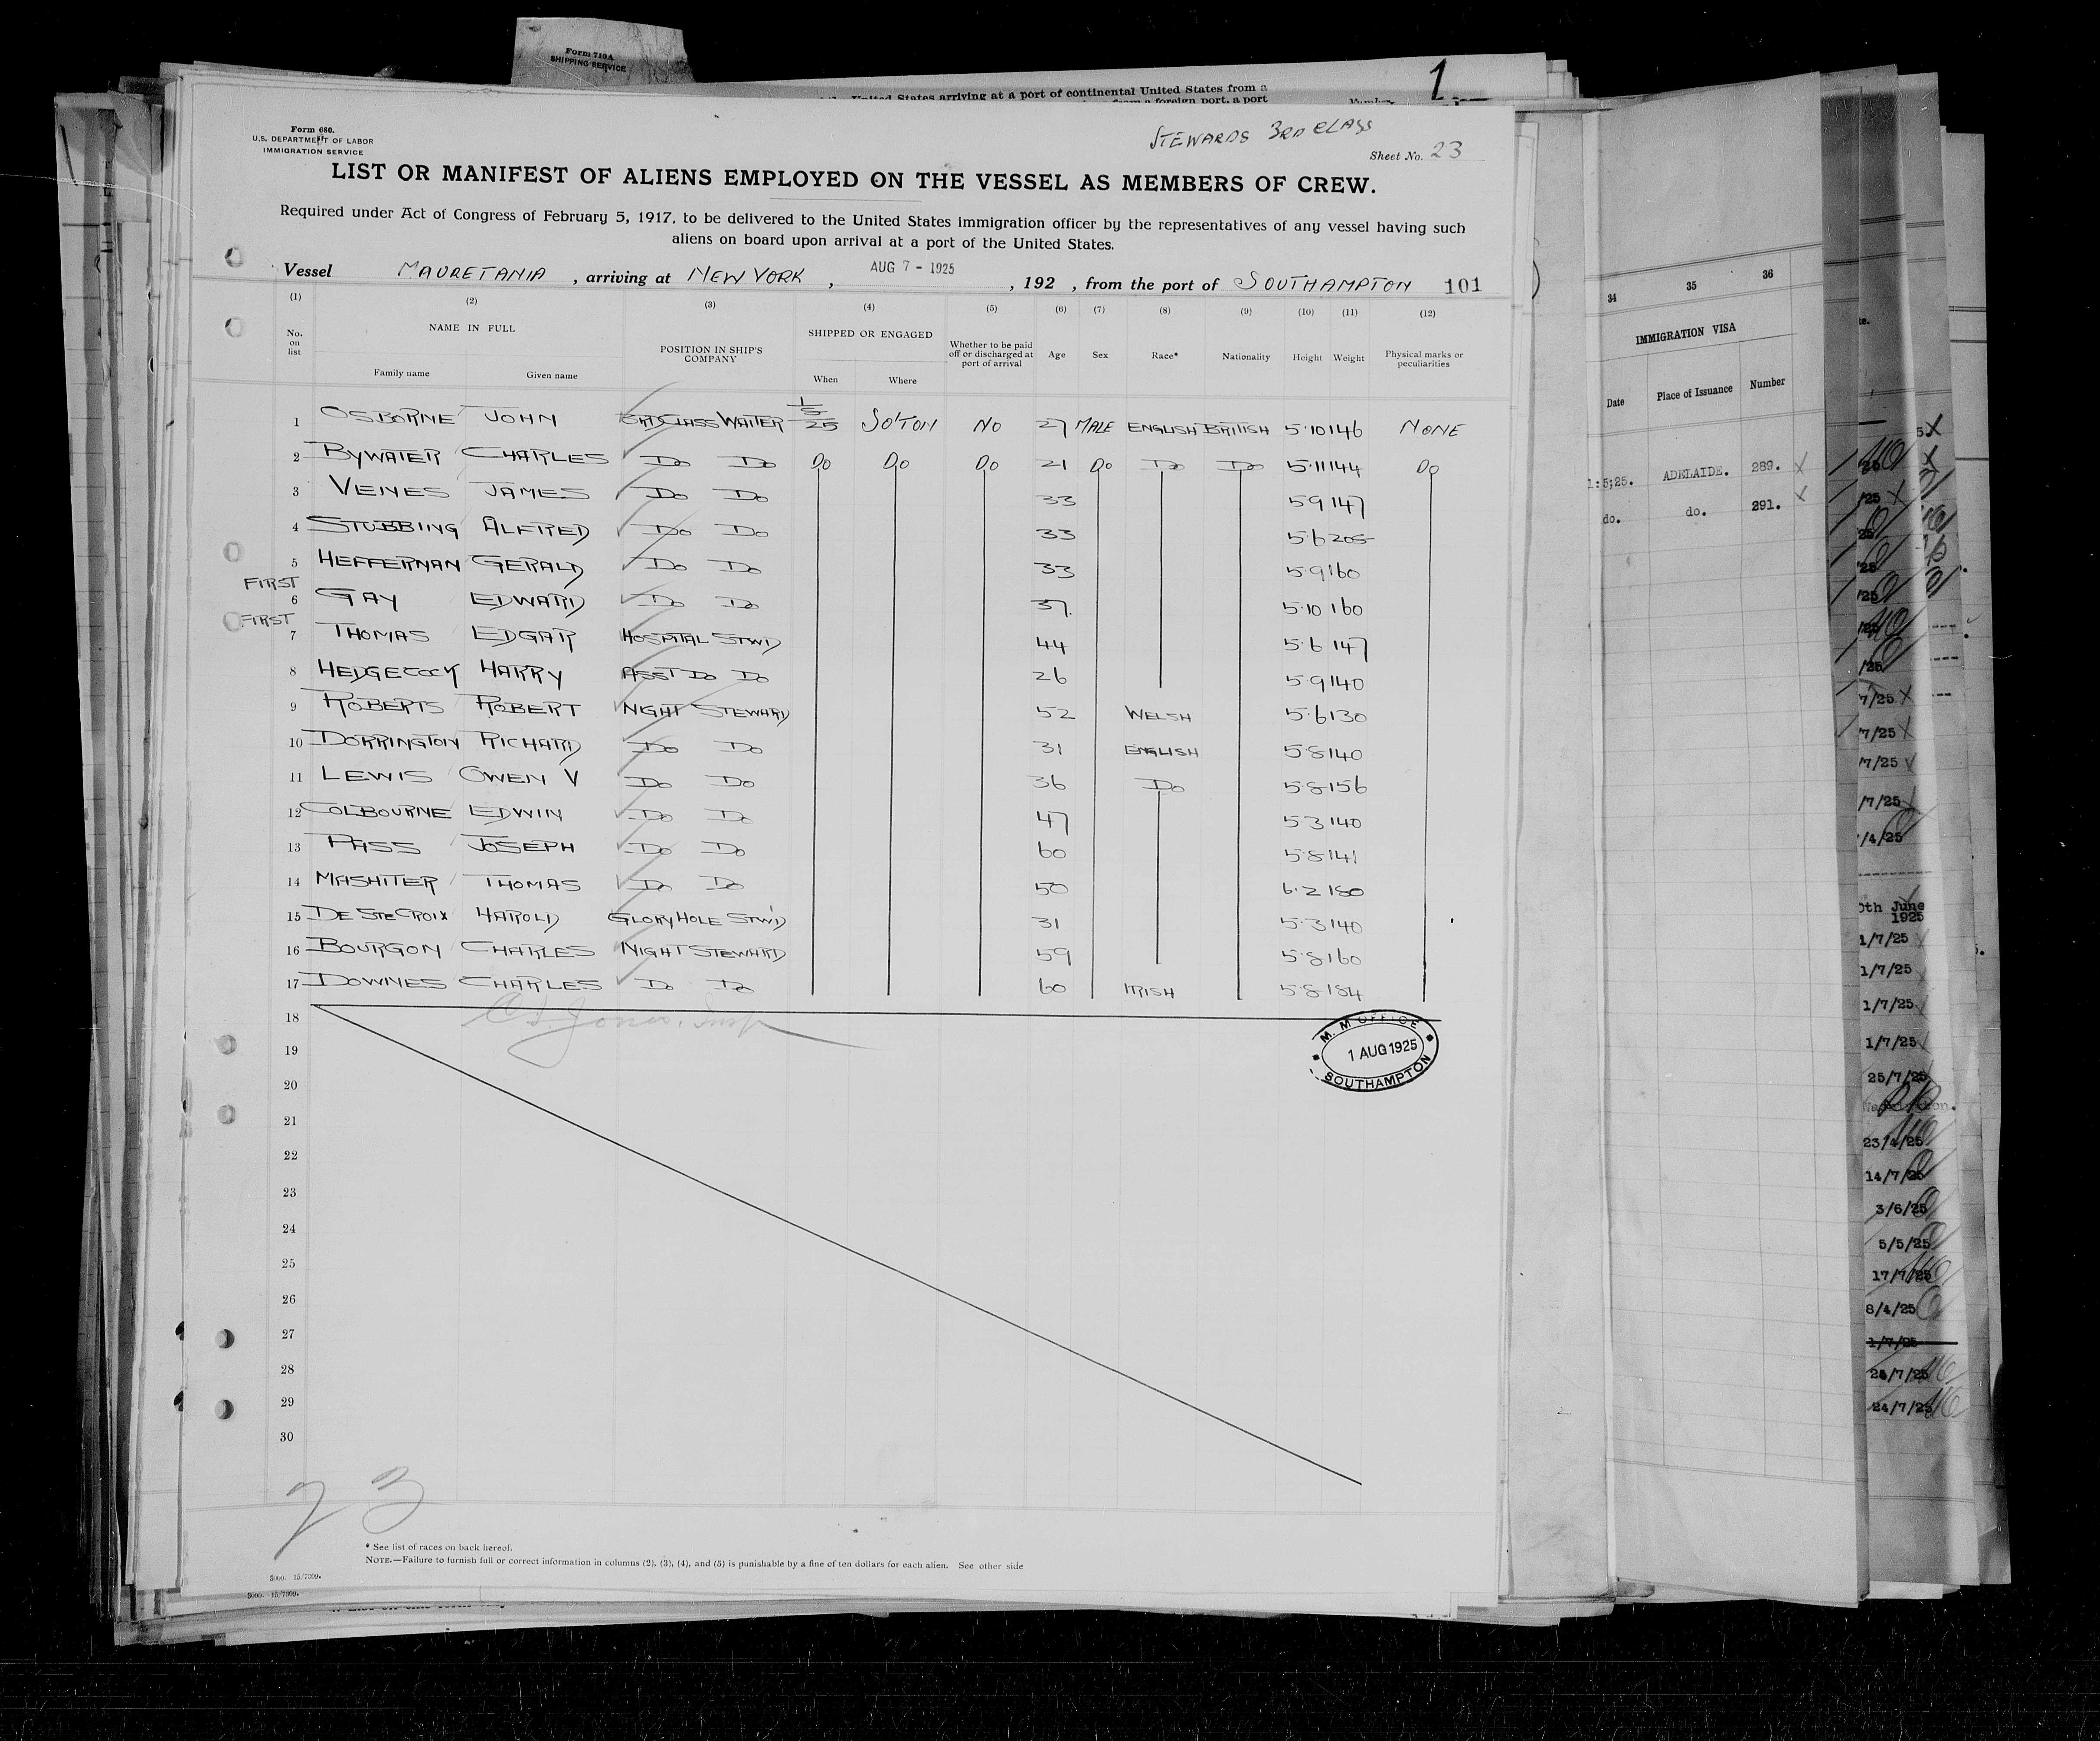 Form 719A
SHIPPING SERVICE
United States arriving at a port of continental United States from a
from a foreign port, a port
1
Form 680.
U.S. DEPARTMENT OF LABOR
IMMIGRATION SERVICE
STEWARDS 3RD CLASS
Sheet No. 23
LIST OR MANIFEST OF ALIENS EMPLOYED ON THE VESSEL AS MEMBERS OF CREW.
Required under Act of Congress of February 5, 1917, to be delivered to the United States immigration officer by the representatives of any vessel having such
aliens on board upon arrival at a port of the United States.
Vessel MAURETANIA , arriving at NEW YORK , AUG 7 - 1925 , 192 , from the port of SOUTHAMPTON 101
(1) (2) (3) (4) (5) (6) (7) (8) (9) (10) (11) (12)
No. on list NAME IN FULL Family name Given name POSITION IN SHIP'S COMPANY SHIPPED OR ENGAGED When Where Whether to be paid off or discharged at port of arrival Age Sex Race* Nationality Height Weight Physical marks or peculiarities
1 OSBORNE JOHN 3RD CLASS WAITER 1/8/25 SO'TON NO 27 MALE ENGLISH BRITISH 5·10 146 NONE
2 BYWATER CHARLES Do Do Do Do Do 21 Do Do Do 5·11 144 Do
3 VENES JAMES Do Do 33 5·9 147
4 STUBBING ALFRED Do Do 33 5·6 205
5 HEFFERNAN GERALD Do Do 33 5·9 160
FIRST
6 GAY EDWARD Do Do 37 5·10 160
FIRST
7 THOMAS EDGAR HOSPITAL STWD 44 5·6 147
8 HEDGECOCK HARRY ASST Do Do 26 5·9 140
9 ROBERTS ROBERT NIGHT STEWARD 52 WELSH 5·6 130
10 DORRINGTON RICHARD Do Do 31 ENGLISH 5·8 140
11 LEWIS OWEN V Do Do 36 Do 5·8 156
12 COLBOURNE EDWIN Do Do 47 5·3 140
13 PASS JOSEPH Do Do 60 5·8 141
14 MASHITER THOMAS Do Do 50 6·2 180
15 DE STE CROIX HAROLD GLORY HOLE STWD 31 5·3 140
16 BOURGON CHARLES NIGHT STEWARD 59 5·8 160
17 DOWNES CHARLES Do Do 60 IRISH 5·8 184
18
Jones, Insp
M. M OFFICE
1 AUG 1925
SOUTHAMPTON
19
20
21
22
23
24
25
26
27
28
29
30
23
* See list of races on back hereof.
NOTE.—Failure to furnish full or correct information in columns (2), (3), (4), and (5) is punishable by a fine of ten dollars for each alien. See other side
5000. 15/7309.
5000. 15/7309.
34 35 36
IMMIGRATION VISA
Date Place of Issuance Number
1:5;25. ADELAIDE. 289. X
do. do. 291. X
7/25 X
7/25
/7/25
/7/25
/4/25
0th June
1925
1/7/25
1/7/25
1/7/25
1/7/25
25/7/25
23/4/25
14/7/25
3/6/25
5/5/25
17/7/25
8/4/25
1/7/25
24/7/25